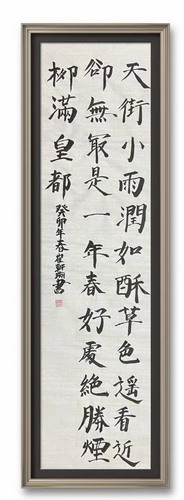 天街小雨潤如酥草色遙看近
卻無最是一年春好處絕勝煙
柳滿皇都
癸卯年春書